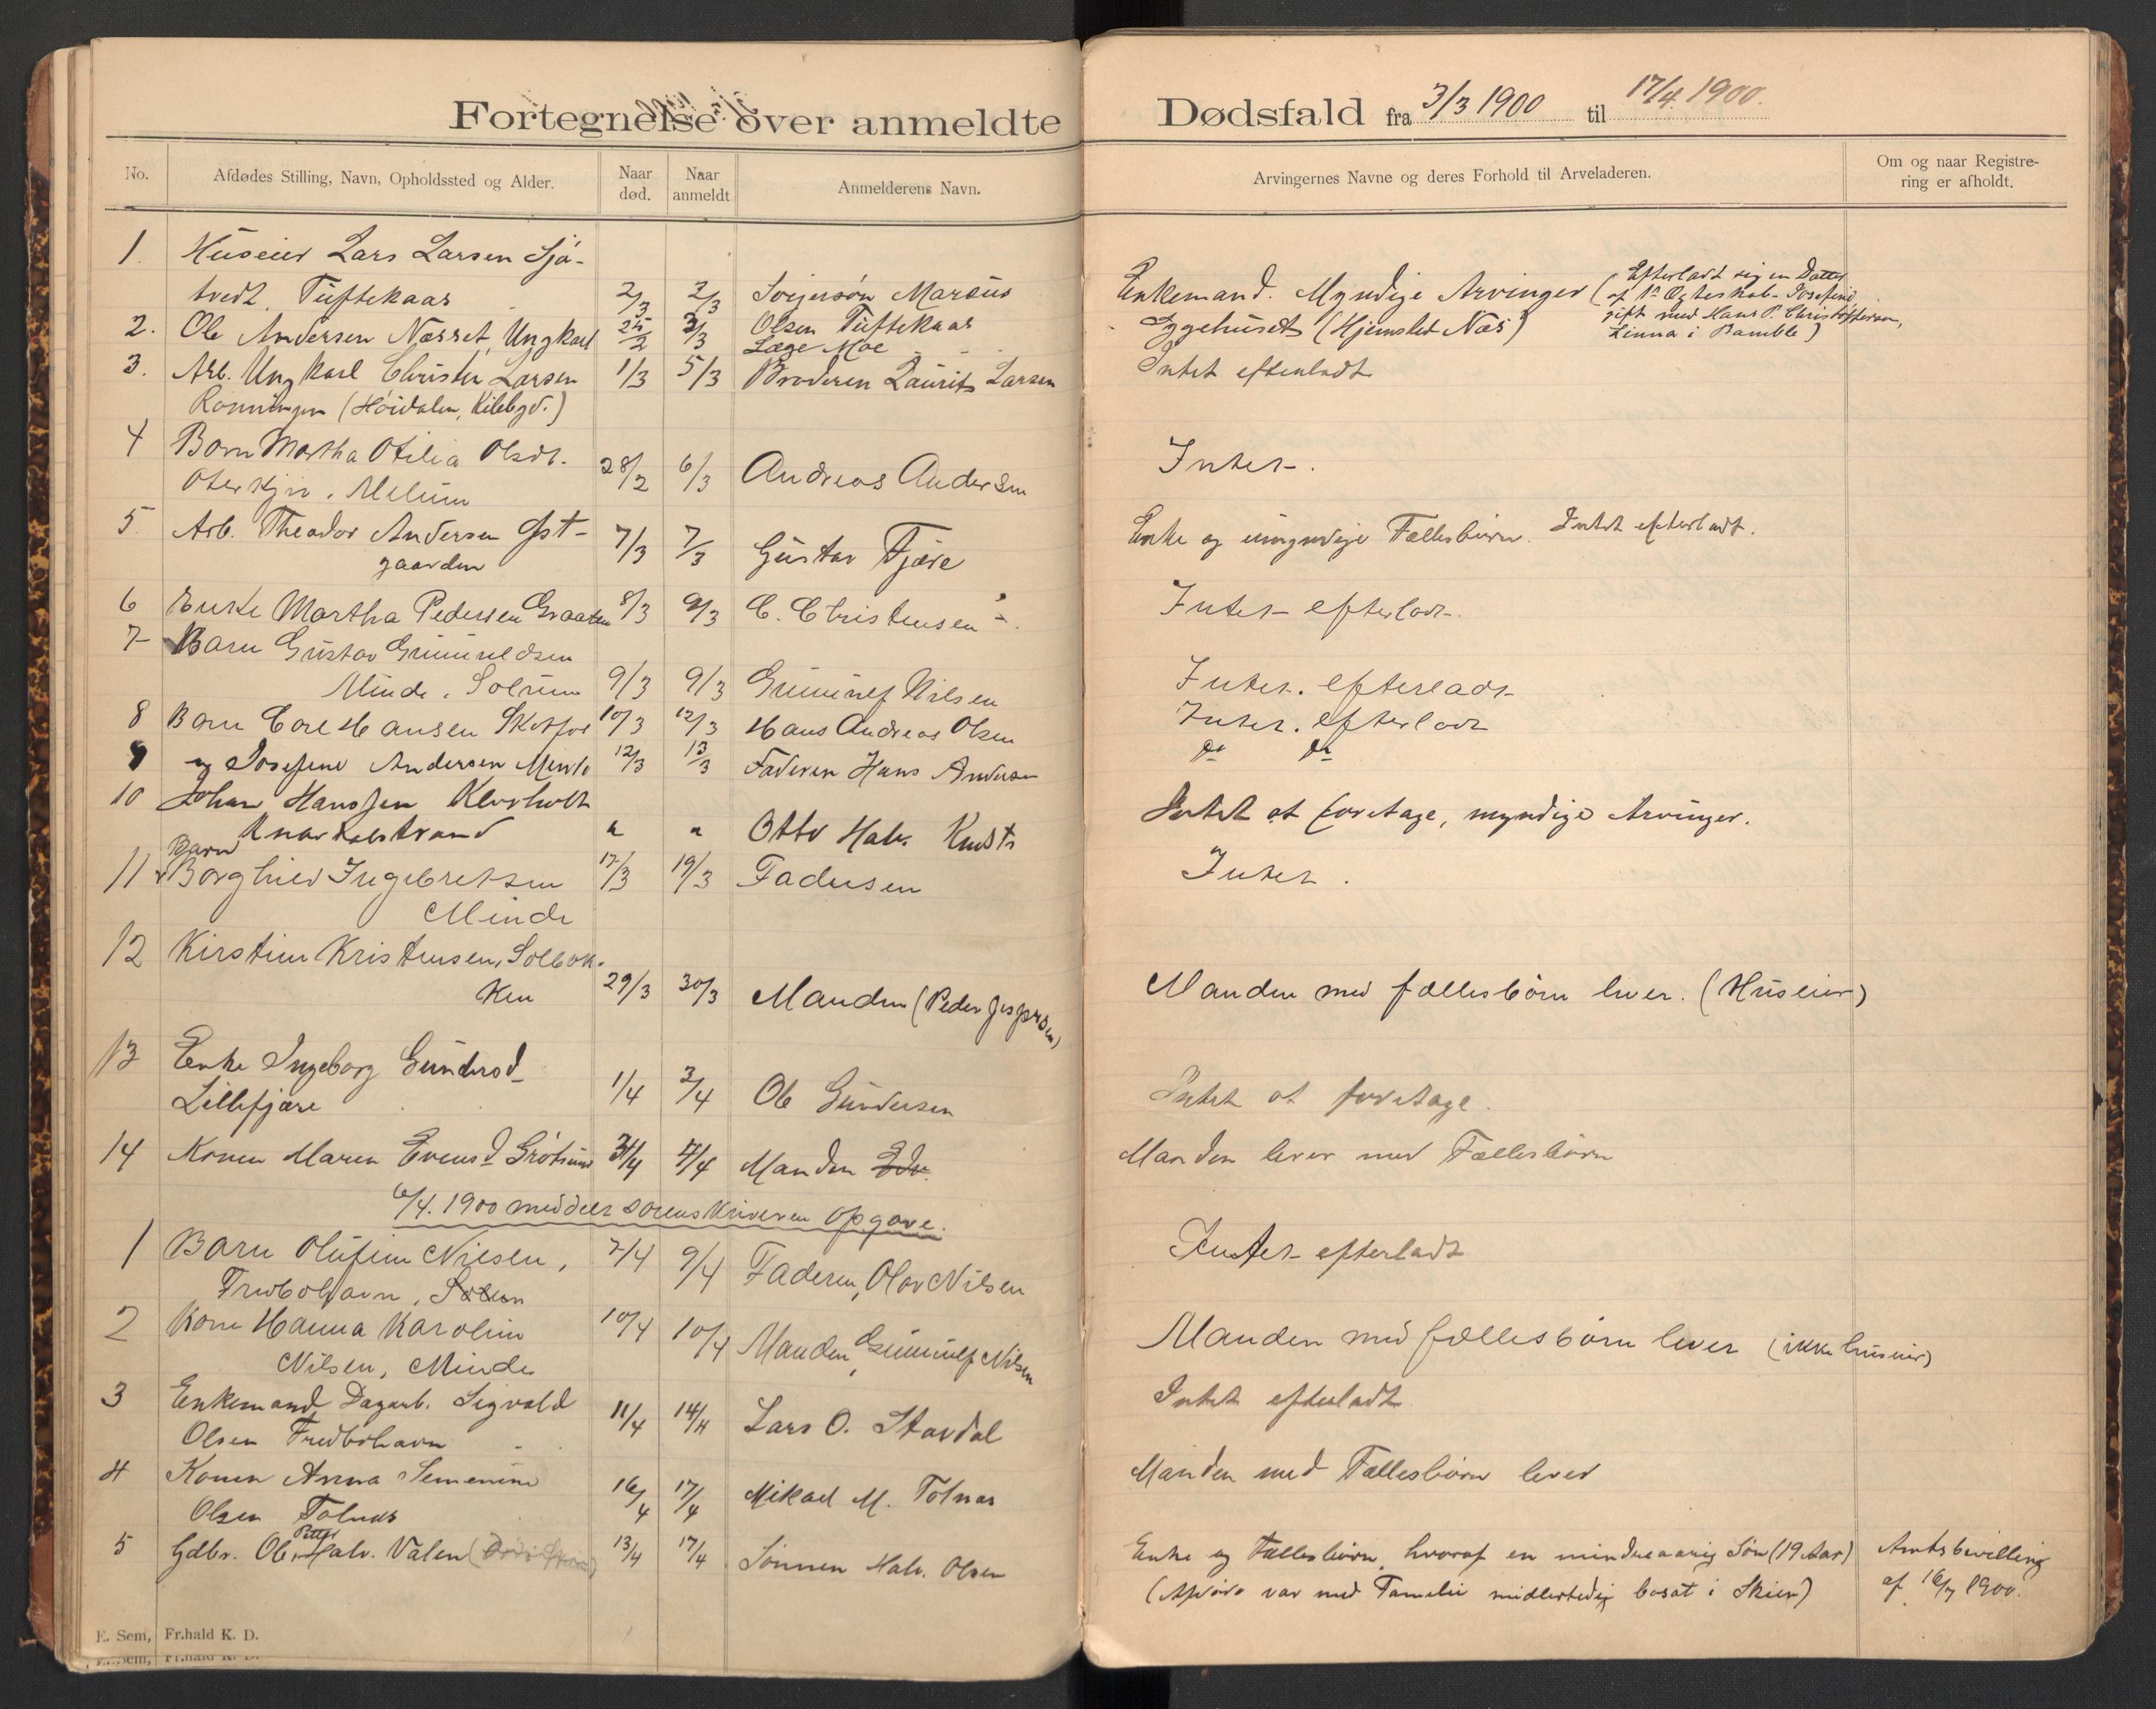 Fortegnelse over anmeldte Dødsfald fra 3/3 1900 til 17/4 1900.
No. Afdødes Stilling, Navn, Opholdssted og Alder. Naar død. Naar anmeldt Anmelderens Navn. Arvingernes Navne og deres Forhold til Arveladeren. Om og naar Registrering er afholdt.
1. Huseier Lars Larsen Sjø-
tvedt, Tuftekaas 2/3 2/3 Svigersøn Marcus Enkemand. Myndige Arvinger (Efterladt sig en Datter
af 1ste Ægteskab - Josefine,
gift med Hans P. Christoffersen,
Linna i Bamble)
2. Ole Andersen Næsset, Ungkarl 25/2 3/3 Olsen Tuftekaas
Læge Moe Sygehuset (Hjemsted Næs)
3. Arb. Ungkarl Christen Larsen 1/3 5/3 Broderen Laurits Larsen Intet efterladt
Rønningen (Høidalen, Kilebygd.)
4 Barn Martha Otilia Olsdt.
Oterkjær, Melum 28/2 6/3 Andreas Andersen Intet.
5. Arb. Theodor Andersen Øst-
gaarden 7/3 7/3 Gustav Fjære Enke og umyndige Fællesbørn. Intet efterladt.
6 Enke Martha Pedersen Graaten 8/3 9/3 C. Christensen Intet efterladt.
7 Barn Gustav Gunnuldsen
Minde, Solum 9/3 9/3 Gunnulf Nilsen Intet. efterladt
8 Barn Carl Hansen Skotfos 10/3 12/3 Hans Andreas Olsen Intet. efterladt
9 " Josefine Andersen Minde 12/3 13/3 Faderen Hans Andersen do do
10 Johan Hanssen Klovholt
Knarkelstrand " " Otto Halv. Intet at foretage, myndige Arvinger.
11 Barn
Borghild Ingebretsen 17/3 19/3 Faderen Intet.
Minde
12 Kirstine Kristensen, Solbak-
ken 29/3 30/3 Manden (Peder Jespersen) Manden med fællesbørn lever. (Huseier)
13 Enke Ingeborg Gundersd.
Lillefjære 1/4 3/4 Ole Gundersen Intet at foretage.
14 Konen Maren Evensd. Grøtsund 3/4 4/4 Manden Manden lever med Fællesbørn
6/4. 1900 meddelt Sorenskriveren Opgave.
1 Barn Olufine Nilsen,
Fredbohavn, Solum 7/4 9/4 Faderen, Olav Nilsen Intet efterladt
2 Kone Hanna Karoline
Nilsen, Minde 10/4 10/4 Manden, Gunnulf Nilsen Manden med fællesbørn lever (ikke huseier)
3 Enkemand Dagarb. Sigvald
Olsen Fredbohavn 11/4 14/4 Lars O. Stavdal Intet efterladt
4 Konen Anna Semenine
Olsen Tolnæs 16/4 17/4 Mikael M. Tolnæs Manden med Fællesbørn lever
5 Gdbr. Ole Petter Halv. Valen 13/4 17/4 Sønnen Halv. Olsen Enke og Fællesbørn, hvoraf en mindreaarig Søn (19 Aar) Amtsbevilling
(Afdøde var med Familie midlertidig bosat i Skien) af 16/7 1900.
E. Sem, Fr.hald K. D.
E. Sem, Fr.hald K. D.